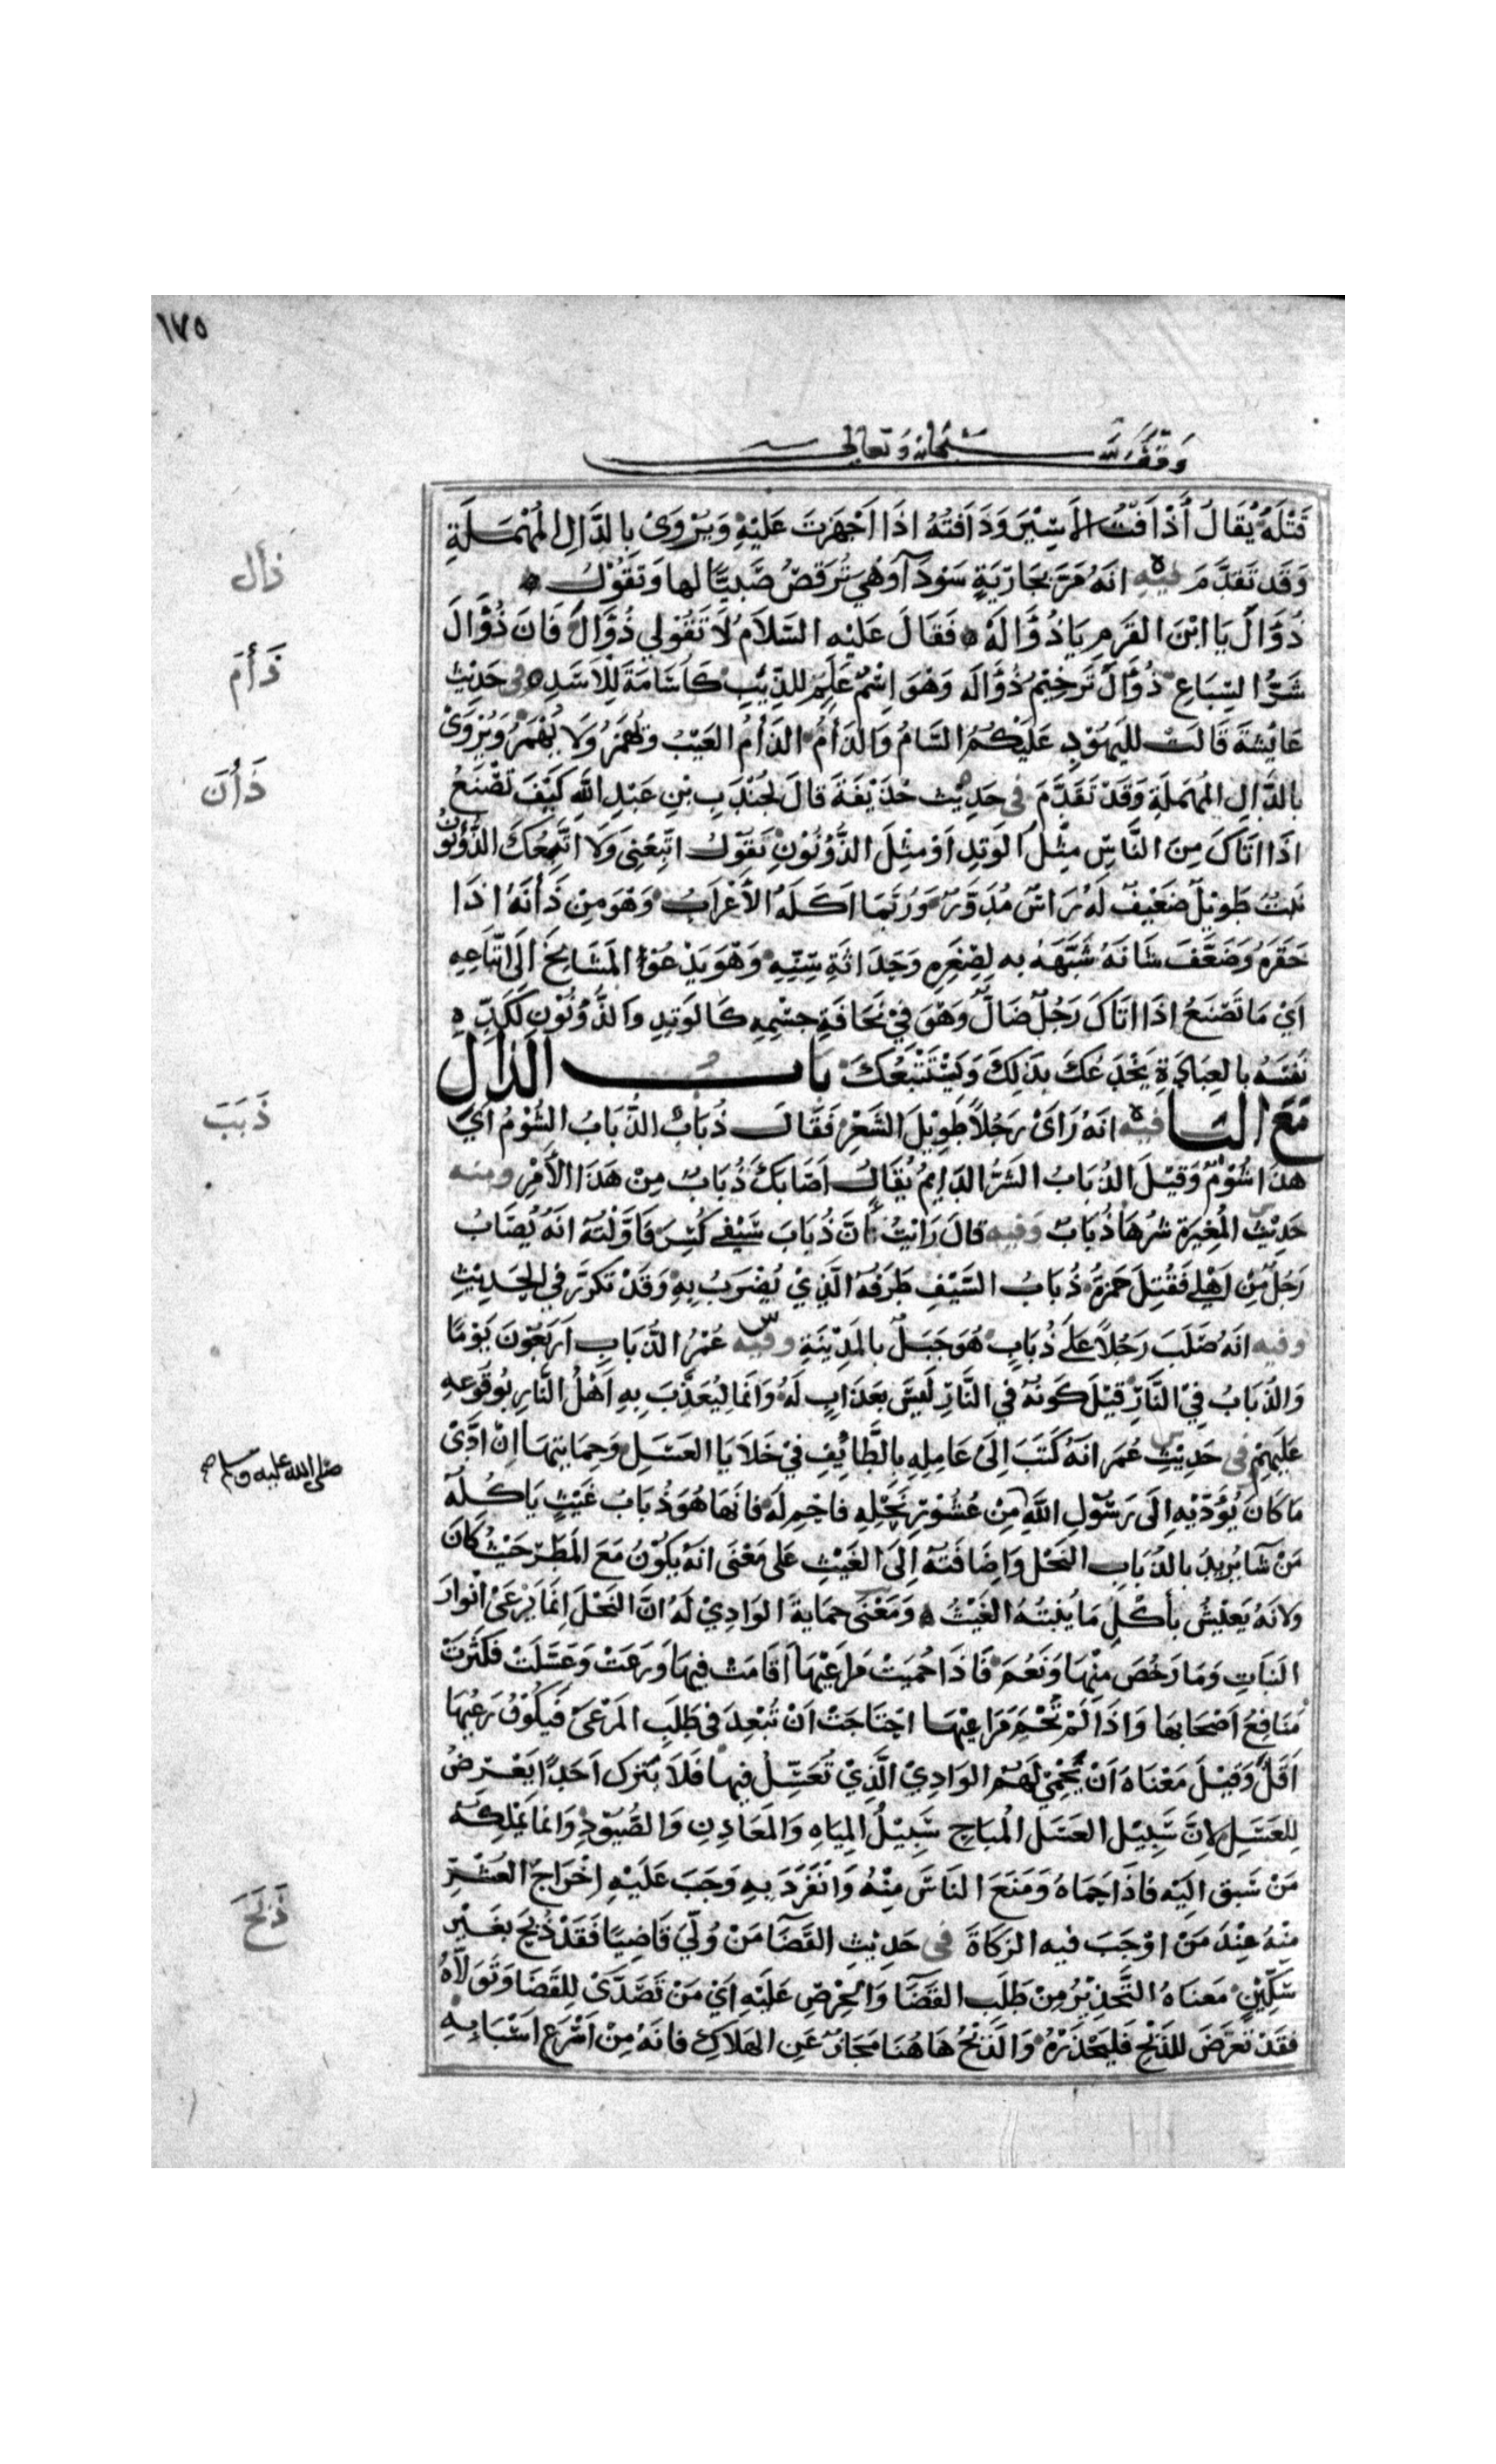 ١٧٥
وَقْفٌ لِلّٰه سُبْحَانَهُ وَتَعَالى
قَتْلَهُ يُقَالُ أَذْاَفْتُ الأَسِيْرَ وَذَافْتُهُ اذَا اَجْهَزتَ عَلَيْهِ وَيُرْوَىْ بالدَّالِ المُهْمَلَةِ
وَقَد تَقَدَّمَ فيه انَهُ مَرَّ بجَارَيَةٍ سَوْدَآ وَهْيَ تُرَقِصُ صَبيَّا لها وَتقُوْلُ
ذُؤَالَ يَا ابْنَ القَرمِ يَا ذُؤَالَهْ فَقَالَ عَلَيْه السَّلاَمُ لاَ تَقُوْلي ذُؤَالَ فَانَ ذُؤَالَ
شَرُّ السِّبَاعِ ذُؤَالَ تَرخِيْمُ ذُؤَالَه وَهْوَ اِسْمٌ عَلَمٌ للذِّيْبِ كَاُسَامَةَ لِلاَسَدِ في حَدِيْثِ
عَايْشَةَ قَالَتْ لليَهُوْدِ عَلَيْكُمُ السَّامُ وَالذَأمُ الذَأمُ العَيْبُ وَيُهْمَزُ وَلاَ يُهْمَزُ وَيُرْوَىْ
بالدَّالِ المُهْمَلَةِ وَقَدْ تَقَدَّمَ فى حَدِيْث حُذَيْفَةَ قالَ لجُنْدَبِ بْنِ عَبْدِ اللَّهِ كَيْفَ تَصْنَعُ
اذَا اتَاكَ مِنَ النَّاسِ مِثْلُ الوَتِدِ اَوْ مثْلَ الذُّؤْنُوْنِ يَقُوْلُ اتَّبِعْنِى وَلاَ اتَّبِعُكَ الذُّؤْنُوْنُ
نبْتٌ طَوِيْلٌ ضَعْيفٌ لَهُ رَاسٌ مُدَوَّرٌ وَرُبَمَا اَكَلَهُ الأَعْرَابُ وَهْوَ مِنْ ذَأَنَهُ اذَا
حَقَرَهُ وَضَعَّفَ شَانَهُ شَبَّهَهُ به لِصْغَرِهِ وَحَدَاثَةِ سِنِّهِ وَهْوَ يَدْعُوْا المَشَايِخَ اِلَى اتِّبَاعِهِ
اَيْ مَا تَصْنَعُ اِذَا اتَاكَ رَجُلٌ ضَالٌ وَهْوَ فِيْ نَحَافَةِ جسْمِهِ كَالوَتِدِ وَالذُّؤْنُوْنِ لِكَدِّهِ
نَفْسَهُ بالعِبَادَةِ يَخْدَعُكَ بذَلِكَ وَيَسْتَتْبعُكَ بَابُ الذَالِ
مَعَ البَا فيْه انَهُ رَاَىْ رَجُلاً طوِيْلَ الشَعْرِ فَقَالَ ذُبَابٌ الذُّبَابُ الشُوْمُ اَيْ
هذَا شُوْمٌ وَقيْلَ الذُبَابُ الشَرُّ الدَايِمُ يُقَالُ اَصَابَكَ ذُبَابٌ مِنْ هَذَا الأَمْرِ ومنه
حَدِيْثُ المُغِيرَة شرُهَا ذُبَابٌ وَفيه قالَ رَايْتُ اَنَّ ذُبَابَ سَيْفي كُسِرَ فَاَوَّلْتُهُ انَهُ يُصَابُ
رَجُلٌ مِّنْ اَهْلي فَقُتِلَ حَمزَةُ ذُبَابُ السَّيْفِ طَرَفُهُ الَّذِيْ يُضْرَبُ بِهِ وَقَدْ تَكَرَّرَ في الحَدِيْثِ
وَفيه انَهُ صَلَبَ رَجُلاً عَلَىْ ذُبَابٍ هُوَ جَبَلٌ بالمَدِيْنَةِ وَفيْه عُمْرُ الذُّبَابِ اَرْبَعُوْنَ يَوْمًا
وَالذُبَابُ فِيْ النَّارِ قيْلَ كَونُهُ في النَّارِ لَيْسَ بعَذَابٍ لَهُ وَانَمَا لِيُعَذِّبَ بِهِ اَهْلُ النَّارِ بوُقُوعهِ
عَلَيْهِمْ فى حَدِيْثِ عُمَرَ انَهُ كَتَبَ اِلَى عَامِلِهِ بالطَايِفِ فيْ خَلاَيَا العَسَلِ وَحِمَايتِهَا اِنْ ادَّىْ
مَا كَانَ يُؤَدِّيْهِ اِلَى رَسُوْلِ اللَّهِ مِنْ عُشُوْرِ نَحْلِهِ فاحْمِ لَه فانَهَا هُوَ ذُبَابُ غَيْثٍ يَاكُلُهُ
مَنْ شَآ يُريدُ بالذُبَابِ النَحْلَ وَاِضَافَتُهُ اِلَىَ الغَيْثِ عَلى مَعْنَى انَهُ يكُوْنُ مَعَ المَطَرِ حَيْثُ كَانَ
وَلانَهُ يَعيْشُ بأكْلِ مَا يُنْبتُهُ الغَيْثُ وَمَعْنَى حمَايَةَ الوَادِيْ لَهُ انَّ النَحْلَ اِنَمَا يَرْعَىْ انْوَارَ
النَبَاتِ وَمَا رَخُصَ منْهَا وَنَعُمَ فَاذَا حُمِيَتْ مَرَاعِيْهَا اَقَامَتْ فيهَا وَرَعَتْ وَعَسَّلَتْ فكَثُرَتْ
مَنَافِعُ اَصْحَابهَا وَاذَا لَمْ تُحْمَ مَرَاعِيْهَا احْتَاجَتْ انْ تُبْعِدَ فى طَلَبِ المَرْعَىْ فَيَكُوْنُ رَعْيُهَا
اَقَلَّ وَقيْلَ مَعْنَاهُ اَنْ يُحْمَىْ لَهُمُ الوَادِيْ الَّذِيْ تُعَسِّلُ فيهَا فَلاَ يُتْرَكُ اَحَدًا يَعْرِضُ
لِلعَسَلِ لاِنَّ سَبِيْلَ العَسَل المُبَاحِ سَبِيْلُ المِيَاهِ وَالمَعَادِنِ وَالصُّيُوْدِ وَانمَا يَمْلِكُهُ
مَنْ سَبَقَ اليْه فَاذَا حَمَاهُ وَمَنَعَ النَاسَ مِنْهُ وَانْفَرَدَ بِهِ وَجَبَ عَلَيْهِ اِخْرَاجُ العُشْرِ
مِنْهُ عِنْدَ مَنْ اوْجَبَ فيه الزَكَاةَ في حَدِيْثِ القَضَآ مَنْ وُلِّيَ قَاضِيًا فَقَدْ ذُبِحَ بغَيْر
سِكِّيْنٍ مَعنَاهُ التَّحْذِيْرُ مِنْ طَلَبِ القَضَآ وَالحِرْصِ عَلَيْهِ اَيْ مَنْ تَصَدَّىْ لِلقَضَا وَتَوَلاَّهُ
فقَدْ تعَرَّضَ للذَّبْحِ فَليَحْذَرْهُ وَالذَبْحُ هَاهُنَا مَجَازٌ عَن الهَلاَكِ فانَهُ مِنْ اَسْرَع اَسْبَابِهِ
ذأل
ذَأمَ
ذَأنَ
ذَبَبَ
صلى الله عليه وسلم
ذَبَحَ